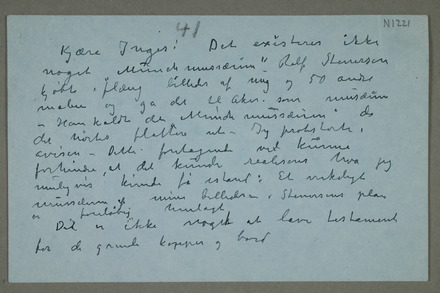 41
N1221
Kjære Inger! Det existerer ikke
noget "Munch mussæum" Rolf Stenersen
kjøbte i fleng billeder af mig og 50 andre
malere og ga det til Aker som musæum
– Han kaldte det Munch mussæum da
det hørtes flottere ut – Jeg protesterte i
avisen – Dette foretagende vil kunne
forhindre at det kunde realiseres hva jeg
muligvis kunde få istand: Et virkeligt
mussæum af mine billeder. Stenersens plan
er foreløbig henlagt
Det er ikke noget at lave testament
for de gamle kopper og bord